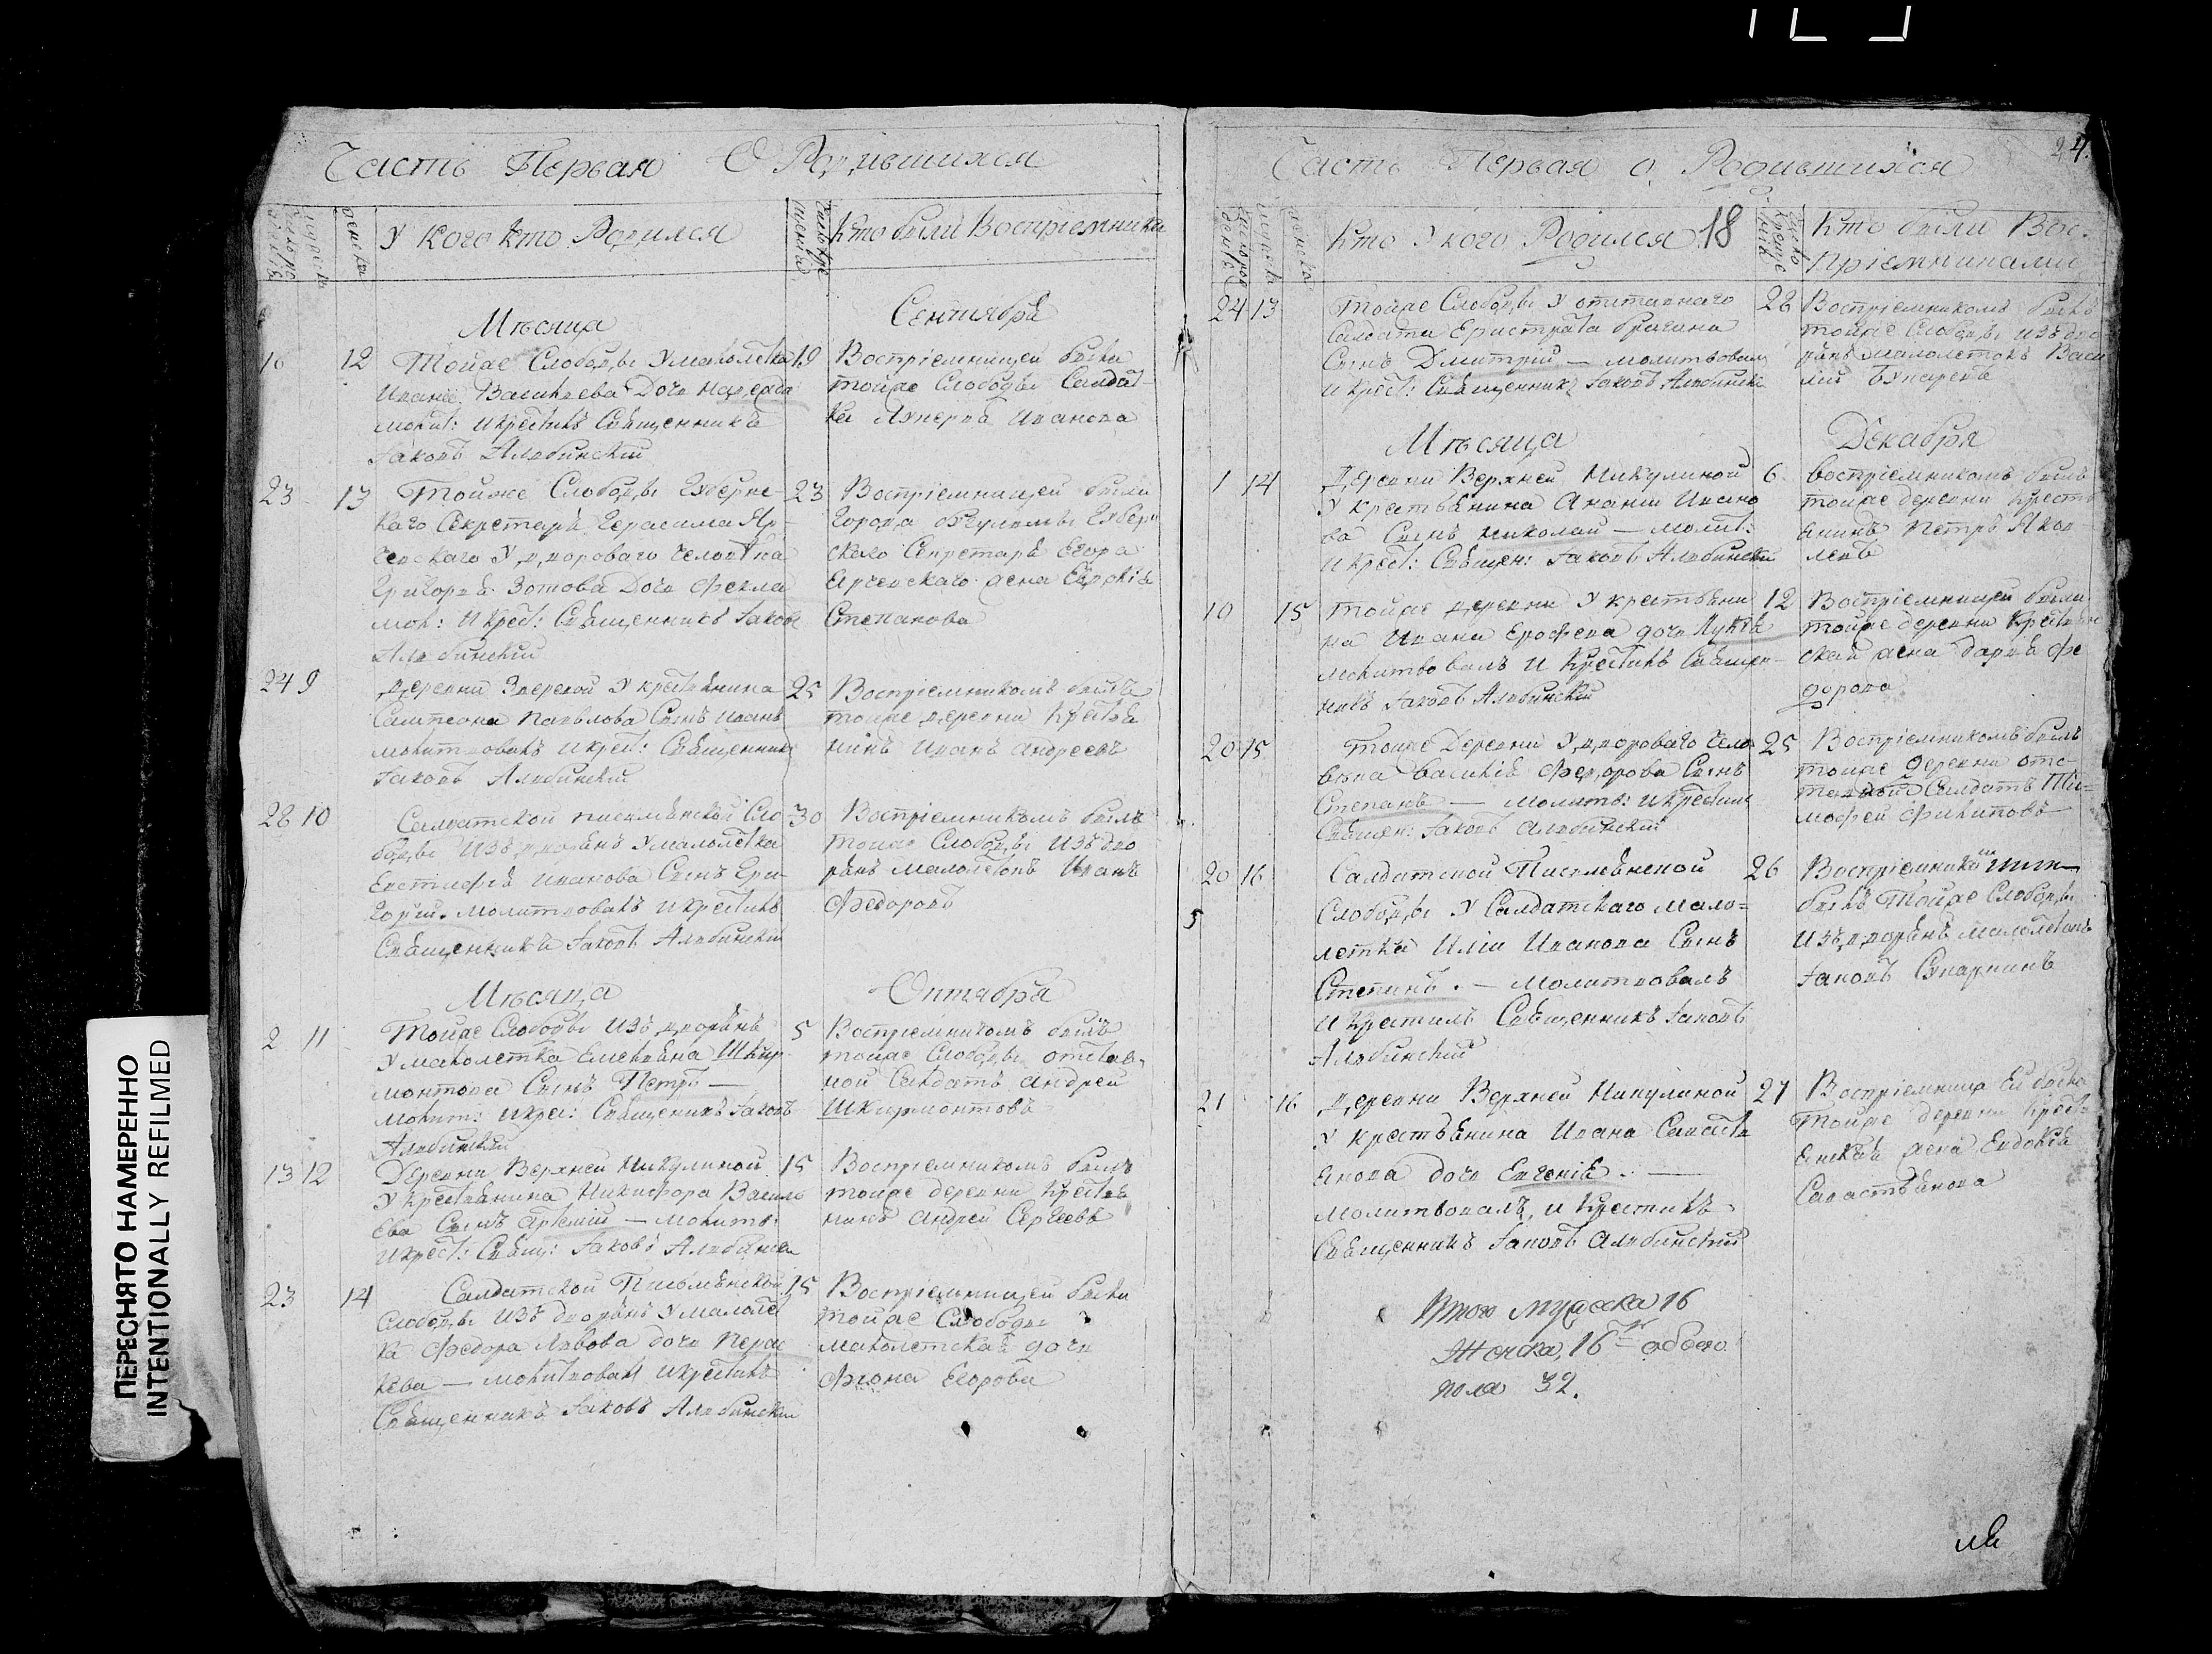 Часть Первая О Родившихся
У кого кто Родился
Кто были Воспріемники
Мѣсяца
Сентября
16 12 Тойже Слободы У малолетка
Ивана Васильева Дочь Надежда
молит: и крестилъ Священникъ
Іаковъ Алябинскій
19 Воспріемницей была
тойже Слободы Салдат-
ка Лукерья Иванова
23 13 Тойже Слободы Губернс-
каго Секретаря Герасима Яр-
чевскаго У дворового человѣка
Григорья Зотова Дочь Фекла
мол: и крест: Священникъ Іаковъ
Алябинскій
23 Воспріемницей были
города Бугульмы Губерн
скаго Секретаря Егора
Ярчевскаго жена Евдокія
Степанова
24 9 деревни Зверевой У крестьянина
Сампсона Павлова Сынъ Иванъ
молитвовалъ и крест: Священникъ
Іаковъ Алябинскій
25 Воспріемникомъ былъ
тойже деревни крестья
нинъ Иванъ Андреевъ
28 10 Салдатской Письмянской Сло
боды Изъ дворянъ У малолетка
Евстифея Иванова Сынъ Гри-
горій. молитвовалъ и крестилъ
Священникъ Іаковъ Алябинскій
30 Воспріемникомъ былъ
тойже Слободы Изъ дво
рянъ малолетокъ Иванъ
Федоровъ
Мѣсяца
Октября
2 11 Тойже Слободы Изъ дворянъ
У малолетка Емельяна Шкир-
монтова Сынъ Петръ —
молит: и крес: Священикъ Іаковъ
Алябинскій
5 Воспріемникомъ былъ
тойже Слободы отстав-
ной Салдатъ Андрей
Шкирмонтовъ
13 12 Деревни Верхней Никулиной
У крестьянина Никифора Василь
ева Сынъ Артемій — молитв:
и крест: Свящ: Іаковъ Алябинскій
15 Воспріемникомъ былъ
тойже деревни крестья
нинъ Андрей Сергеевъ
23 14 Салдатской Письмянской
Слободы Изъ дворянъ У малолет
ка Федора Львова дочь Парас
кева — молитвовалъ и крестилъ
Священникъ Іаковъ Алябинскій
15 Воспріемницей была
тойже Слободы
малолетская дочь
Фіона Егорова
Часть Первая о Родившихся
24.
Кто У кого Родился 18
Кто были Вос-
Пріемниками
24 13 Тойже Слободы У отставнаго
Салдата Еристрата Брагина
Сынъ Дмитрий — молитвовалъ
и крест: Священникъ Іаковъ Алябинскій
28 Воспріемникомъ былъ
тойже Слободы Изъ дво
рянъ малолетокъ Васи
лій
Мѣсяца
Декабря
1 14 Деревни Верхней Никулиной
У крестьянина Анании Ивано
ва Сынъ Николай — молит:
и крест: Священ: Іаковъ Алябинскій
6 Воспріемникомъ былъ
тойже деревни крестья
янинъ Петръ Яков
левъ
10 15 Тойже деревни У крестьяни
на Ивана Ерофеева дочь Лукія
молитвовалъ и крестилъ Священ-
никъ Іаковъ Алябинскій
12 Воспріемницей была
тойже деревни крестьян
ская жена Дарья Фе
дорова
20 15 Тойже Деревни У двороваго чело
века Василія Федорова Сынъ
Степанъ — молитв: и крестилъ
Священ: Іаковъ Алябинскій
25 Воспріемникомъ былъ
тойже деревни отс-
тавной Салдатъ Ти-
мофей Филиповъ
20 16 Салдатской Писмянской
Слободы У Салдатскаго мало-
летка Иліи Иванова Сынъ
Степанъ. — молитвовалъ
и крестилъ Священникъ Іаковъ
Алябинскій
26 Воспріемникомъ
былъ Тойже Слободы
Изъ дворянъ малолетокъ
Іаковъ
21 16 деревни Верхней Никулиной
У крестьянина Ивана Савасть
янова дочь Евгенія. —
молитвовалъ, и крестилъ
Священникъ Іаковъ Алябинскій
27 Воспріемница Ей была
Тойже деревни крест-
янская жена Евдокія
Савастьянова
Итого мужеска 16
Женска 16 обоего
пола 32.
ПЕРЕСНЯТО НАМЕРЕННО
INTENTIONALLY REFILMED